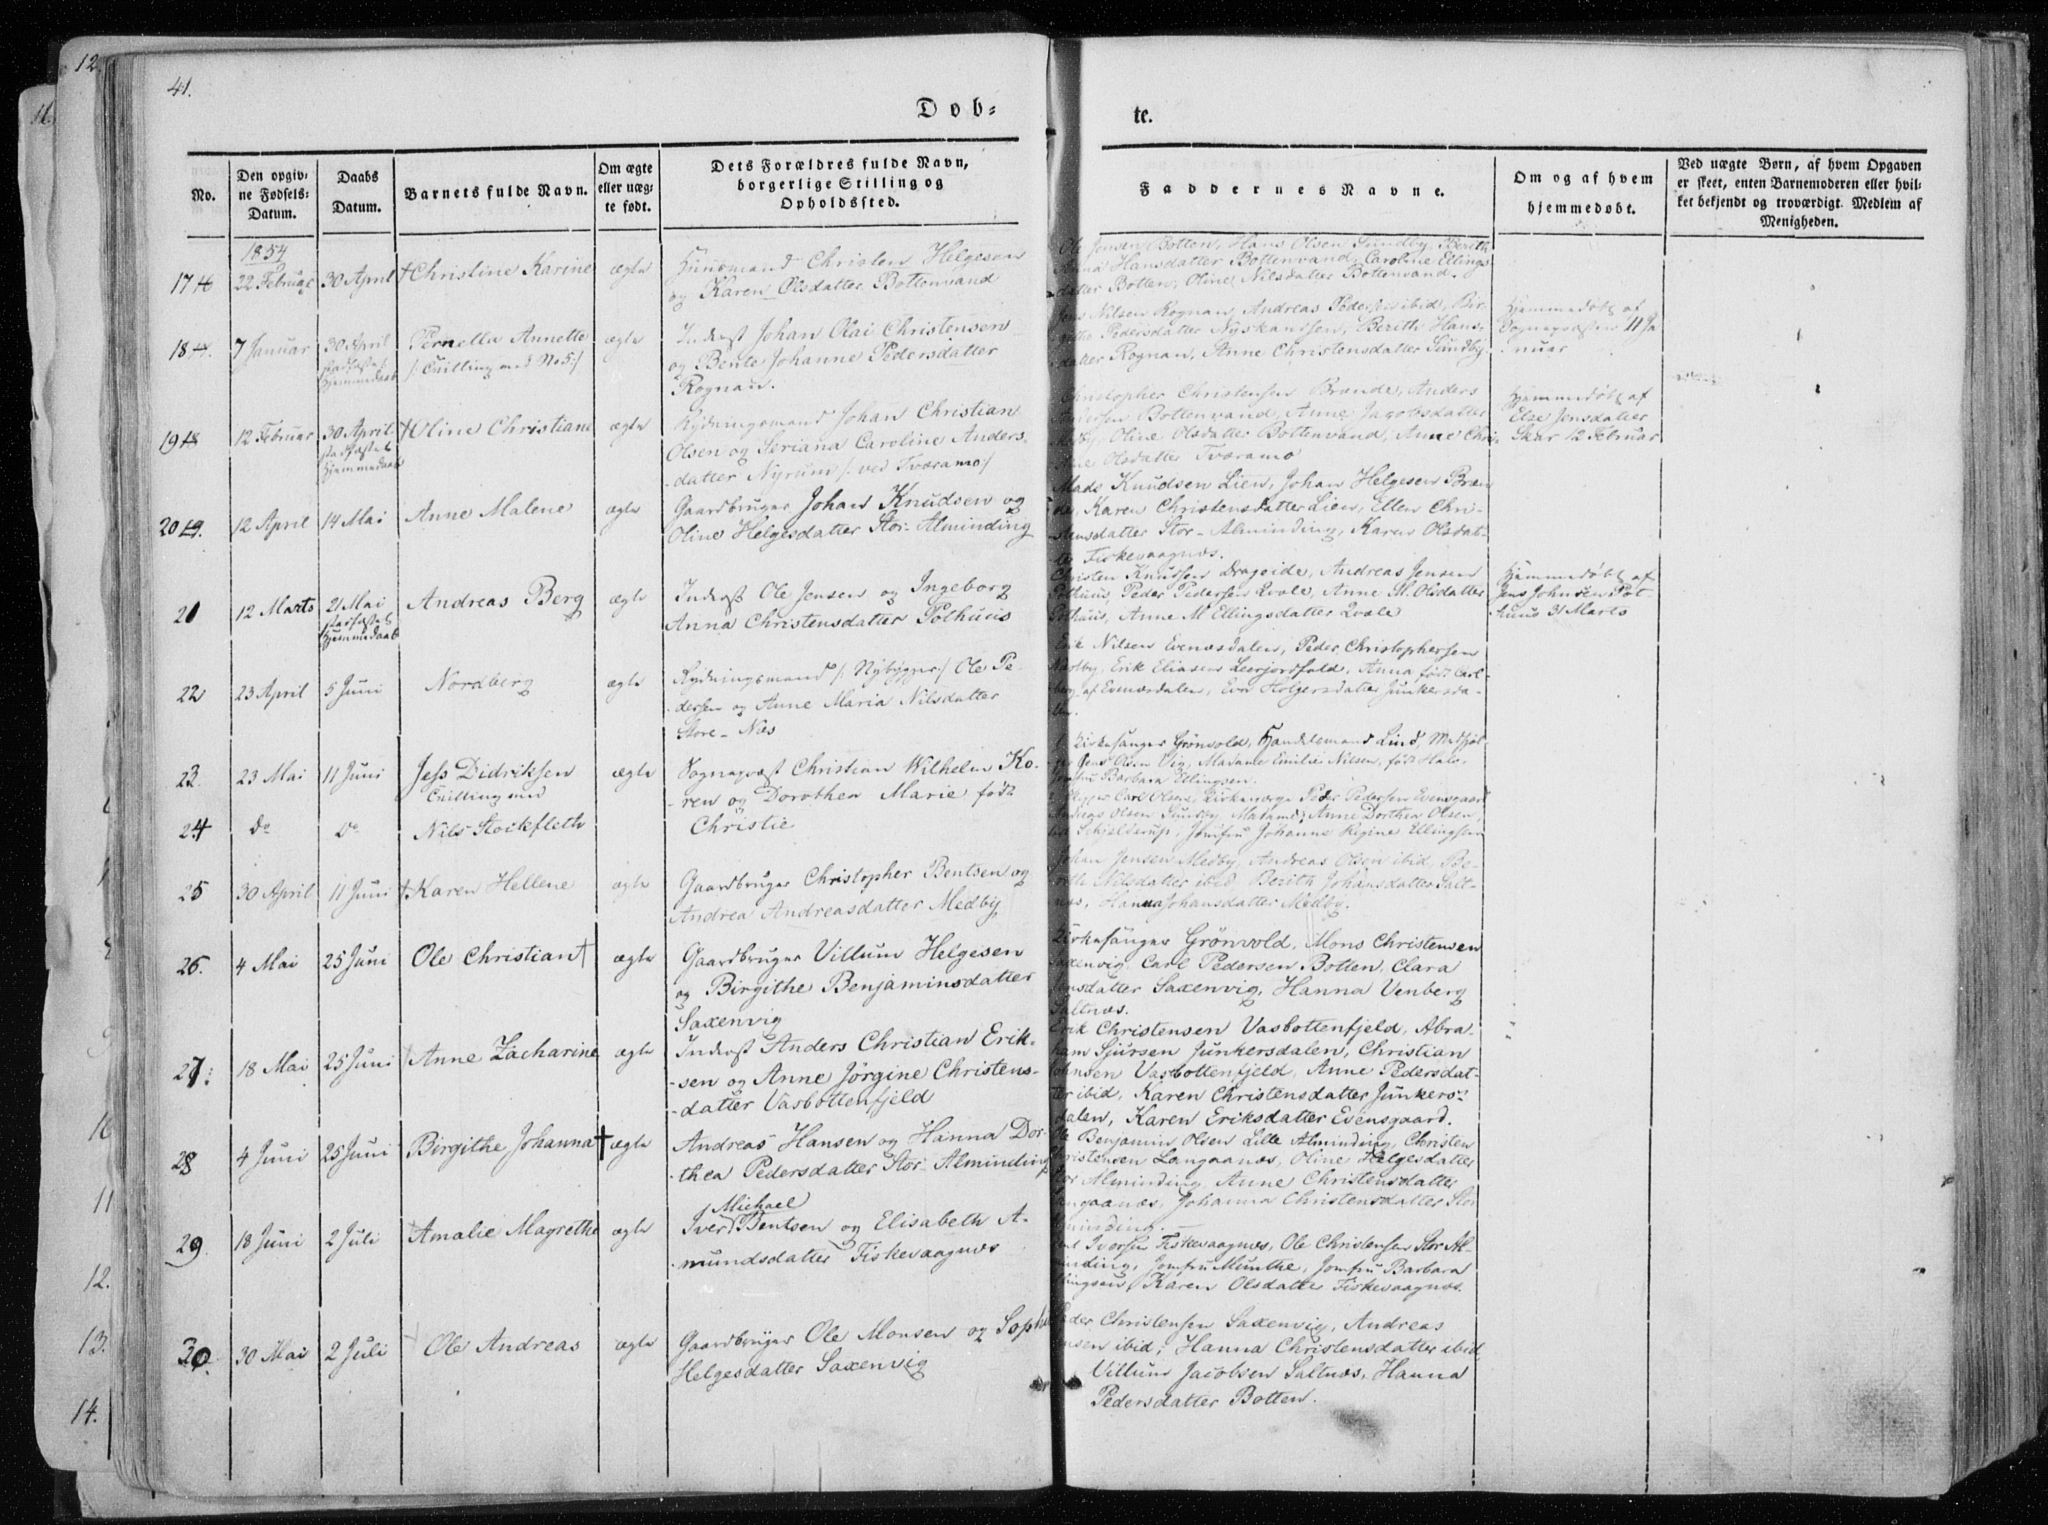 12.
11.
41.
Døb-
te.
No.
Den opgiv-
ne Fødsels-
Datum.
Daabs
Datum.
Barnets fulde Navn.
Om ægte
eller uæg-
te født.
Dets Forældres fulde Navn,
borgerlige Stilling og
Opholdssted.
Faddernes Navne.
Om og af hvem
hjemmedøbt.
Ved uægte Børn, af hvem Opgaven
er skeet, enten Barnemoderen eller hvil-
ket bekjendt og troværdigt Medlem af
Menigheden.
1854
17 22 Februar 30 April †Christine Karine ægte
Huusmand Christen Helgesen
og Karen Olsdatter Bottenvand
Ole Jensen Botten, Hans Olsen Sundby, Berith
Anna Hansdatter Bottenvand, Caroline Ellings-
datter Botten, Oline Nilsdatter Bottenvand.
18 7 Januar 30 April
stadfæstet
Hjemmedaab
Pernella Annette
/: Tvilling med No 5:/
ægte
Inderst Johan Olai Christensen
og Bente Johanne Pedersdatter
Rognan.
Jens Nilsen Rognan, Andreas Pedersen ibid, Bir-
githe Pedersdatter Nyskandsen, Berith Hans-
datter Rognan, Anne Christensdatter Sundby.
Hjemmedøbt af
Sognepræsten 11 Ja
nuar
19 12 Februar 30 April
stadfæstet
Hjemmedaab
†Oline Christiane ægte
Rydningsmand Johan Christian
Olsen og Seriana Caroline Anders-
datter Nyrum /: ved Tværamo:/
Christopher Christensen Brænde, Anders
Andersen Bottenvand, Anne Jacobsdatter
Medby, Oline Olsdatter Bottenvand, Anne Chri-
stine Olsdatter Tværamo
Hjemmedøbt af
Else Jensdatter
Skar 12 Februar
20 19. 12 April 14 Mai Anne Malene ægte
Gaardbruger Johan Knudsen og
Oline Helgesdatter Stor-Alminding
Mads Knudsen Lien, Johan Helgesen Bræn
de, Karen Christensdatter Lien, Ellen Chri-
stensdatter Stor-Alminding, Karen Olsdat-
ter Fiskevaagnæs.
21 12 Marts 21 Mai
stadfæstet
Hjemmedaab
Andreas Berg ægte
Inderst Ole Jensen og Ingeborg
Anna Christensdatter Pothuus
Christen Knudsen Drageide, Andreas Jensen
Pothuus, Peder Pedersen Qvale, Anne M. Olsdatter
Pothuus, Anne M Ellingsdatter Qvale
Hjemmedøbt af
Jens Johnsen Pot
huus 31 Marts
22 23 April 5 Juni Nordberg ægte
Rydningsmand /: Nybygger:/ Ole Pe-
dersen og Anne Maria Nilsdatter
Store-Næs
Erik Nilsen Evenæsdalen, Peder Christophersen
Medby, Erik Eliasen Leerjordfald, Anna født Carl-
berg af Evenæsdalen, Eva Holgersdatter Junkersda-
len.
23. 23 Mai 11 Juni Jess Didriksen
Tvilling med
ægte
Sognepræst Christian Wilhelm Ko-
ren og Dorothea Marie født
Christie
Kirkesanger Grönvold, Handelsmand Lind, Madhjel-
per Jens Olsen Vig, Madame Emilie Nilsen, født Hals,
Jomfru Barbara Ellingsen.
24 Do Do Nils Stockfleth
Skipper Carl Olsen, Kirkeværge Peder Pedersen Evensgaard
Andreas Olsen Sundby, Madame Anne Dorthea Olsen,
født Schjelderup, Jomfru Johanne Regine Ellingsen
25 30 April 11 Juni †Karen Hellene ægte
Gaardbruger Christopher Bentsen og
Andrea Andreasdatter Medby
Johan Jensen Medby, Andreas Olsen ibid, Be-
rith Nilsdatter ibid, Berith Johansdatter Salt-
næs, Hanna Johansdatter Medby.
26. 4 Mai 25 Juni Ole Christian† ægte
Gaardbruger Villum Helgesen
og Birgithe Benjaminsdatter
Saxenvig
Kirkesanger Grönvold, Mons Christensen
Saxenvig, Carl Pedersen Botten, Clara
Jensdatter Saxenvig, Hanna Venberg
Saltnæs.
27: 18 Mai 25 Juni Anne Zacharine ægte
Inderst Anders Christian Erik-
sen og Anne Jörgine Christens-
datter Vasbottenfjeld
Erik Christensen Vasbottenfjeld, Abra-
ham Sjursen Junkersdalen, Christian
Johnsen Vasbottenfjeld, Anne Pedersdat-
ter ibid, Karen Christensdatter Junkers-
dalen, Karen Eriksdatter Evensgaard.
28 4 Juni 25 Juni Birgithe Johanna† ægte
Andreas Hansen og Hanna Dor-
thea Pedersdatter Stor-Alminding
Ole Benjamin Olsen Lille Alminding, Christen
Christensen Langaanæs, Oline Helgesdatter
Stor Alminding, Anne Christensdatter
Langaanæs, Johanna Christensdatter Stor
Alminding.
29. 18 Juni 2 Juli Amalie Magrethe ægte
Michael
Iver Bentsen og Elisabeth A-
mundsdatter Fiskevaagnæs
Iversen Fiskevaagnæs, Ole Christensen Stor Al-
minding, Jomfru Munthe, Jomfru Barbara
Ellingsen, Karen Olsdatter Fiskevaagnæs.
30. 30 Mai 2 Juli Ole Andreas ægte
Gaardbruger Ole Monsen og Sophie
Helgesdatter Saxenvig
Peder Christensen Saxenvig, Andreas
Jensen ibid, Hanna Christensdatter ibid,
Villum Jacobsen Saltnæs, Hanna
Pedersdatter Botten.
10
11
12.
13.
14.